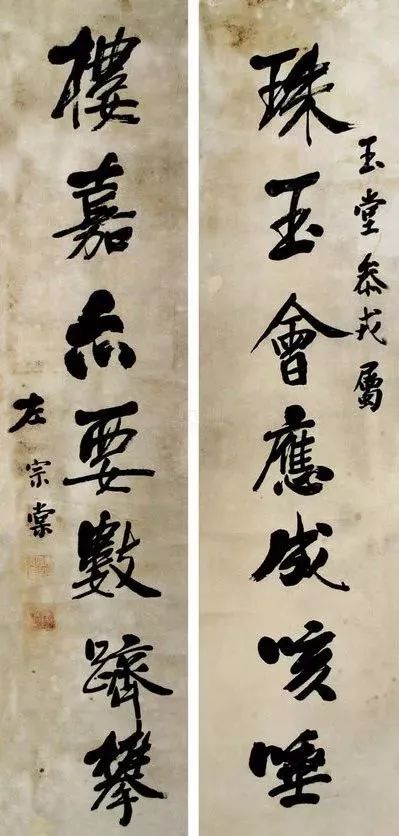 玉堂叅戎屬
珠玉會應成咳唾
樓嘉亦要數躋攀
左宗棠